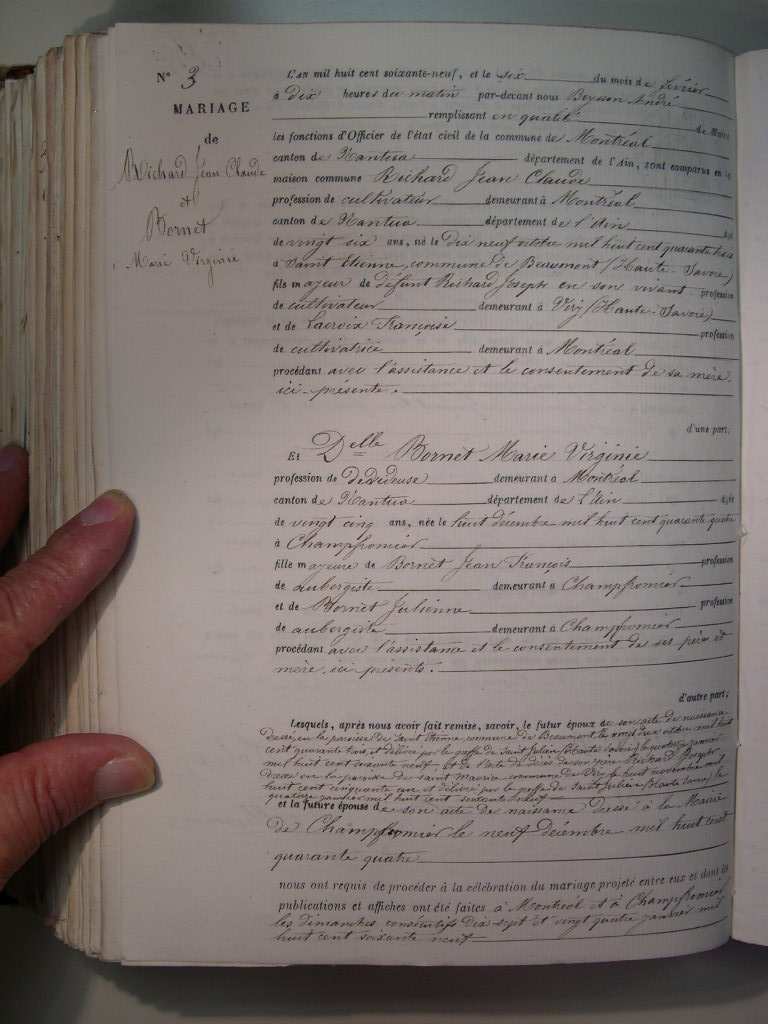 N° 3
MARIAGE
de
Richard Jean Claude
et
Bornet
Marie Virginie
L'AN mil huit cent soixante-neuf, et le six du mois de février
à dix heures du matin par-devant nous Beysson André
remplissant en qualité de Maire
les fonctions d'Officier de l'état civil de la commune de Montréal
canton de Nantua département de l'Ain, sont comparus en la
maison commune Richard Jean Claude
profession de cultivateur demeurant à Montréal
canton de Nantua département de l'Ain âgé
de vingt six ans, né le Dix neuf octobre mil huit cent quarante trois
à Saint Etienne, commune de Beaumont (Haute-Savoie)
fils majeur de défunt Richard Joseph en son vivant profession
de cultivateur demeurant à Viry (Haute-Savoie)
et de Lacroix Françoise profession
de cultivatrice demeurant à Montréal
procédant avec l'assistance et le consentement de sa mère,
ici présente.
d'une part;
Et Delle Bornet Marie Virginie
profession de dévideuse demeurant à Montréal
canton de Nantua département de L'Ain âgée
de vingt cinq ans, née le huit décembre mil huit cent quarante quatre
à Champfromier
fille majeure de Bornet Jean François profession
de aubergiste demeurant à Champfromier
et de Bornet Julienne profession
de aubergiste demeurant à Champfromier
procédant avec l'assistance et le consentement de ses père et
mère, ici présents.
d'autre part;
Lesquels, après nous avoir fait remise, savoir, le futur époux de son acte de naissance
Dressé en la paroisse de Saint Etienne, commune de Beaumont le dix octobre mil huit
cent quarante trois, et délivré par le greffe de Saint Julien (Haute Savoie) le janvier
mil huit cent soixante neuf et de l'acte de décès de son père Richard Joseph
Dressé en la paroisse de Saint Maurice commune de Viry le huit novembre mil
huit cent cinquante et délivré par le greffe de Saint Julien (Haute Savoie) le
quatorze janvier mil huit cent soixante neuf
et la future épouse de son acte de naissance dressé à la Mairie
de Champfromier le neuf Décembre mil huit cent
quarante quatre
nous ont requis de procéder à la célébration du mariage projeté entre eux et dont les
publications et affiches ont été faites à Montréal et à Champfromier
les dimanches consécutifs dix-sept et vingt quatre janvier mil
huit cent soixante neuf